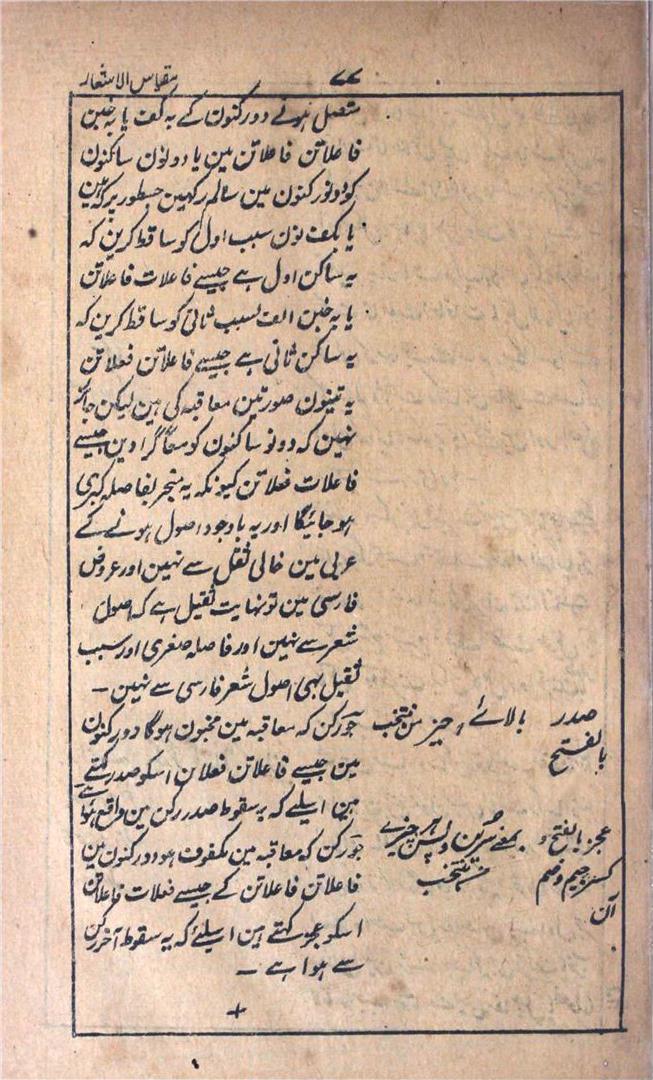 مقیاس الاشعار
۷۷
متصل ہونے دو رکنون کے بہ کف یا بہ خبن
فاعلاتن فاعلاتن مین یا دونون ساکنون
کو دونو رکنون مین سالم رکہین جسطور پر کہ ہین
یا بکف نون سبب اول کو ساقط کرین کہ
یہ ساکن اول ہے جیسے فاعلات فاعلاتن
یا بہ خبن الف سبب ثانی کو ساقط کرین کہ
یہ ساکن ثانی ہے جیسے فاعلاتن فعلاتن
یہ تینون صورتین معاقبہ کی ہین لیکن جائز
نہین کہ دونو ساکنون کو معاً گرا دین جیسے
فاعلات فعلاتن کیونکہ یہ منجر بفاصلہ کبری
ہو جائیگا اور یہ باوجود اصول ہونے کے
عربی مین خالی ثقل سے نہین اور عروض
فارسی مین تو نہایت ثقیل ہے کہ اصول
شعر سے نہین اور فاصلہ صغری اور سبب
ثقیل بہی اصول شعر فارسی سے نہین ۔
جو رکن کہ معاقبہ مین مخبون ہوگا دو رکنون
مین جیسے فاعلاتن فعلاتن اسکو صدر کہتے
ہین اسلیے کہ یہ سقوط صدر رکن مین واقع ہوا ہے
جو رکن کہ معاقبہ مین مکفوف ہو دو رکنون مین
فاعلاتن فاعلاتن کے جیسے فعلات فاعلاتن
اسکو عجز کہتے ہین اسلیئے کہ یہ سقوط آخر رکن
سے ہوا ہے ۔
صدر بالفتح
بالائے ہر چیز من منتخب
عجز بالفتح و کسر جیم و ضم آن
بمعنے سُرین و پس ہر چیزے من منتخب